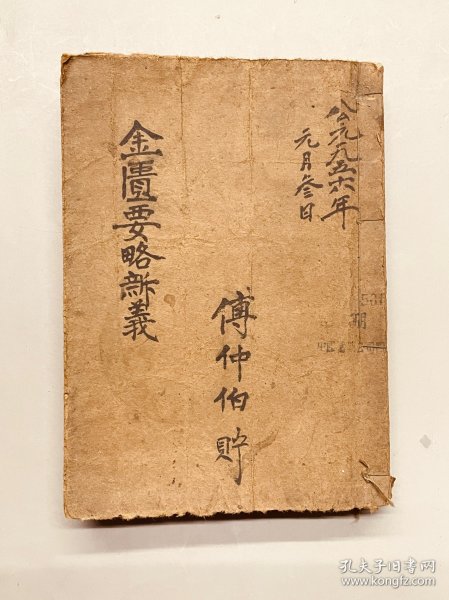 公元九五六年
元月叁日
傅仲伯貯
金匱要略新義
孔夫子旧书网
www.kongfz.com